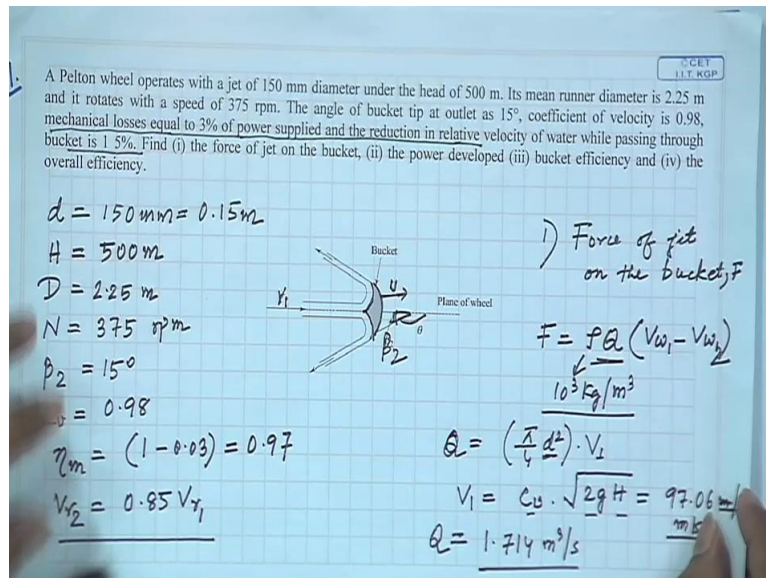 CCET
I.I.T. KGP
1.
A Pelton wheel operates with a jet of 150 mm diameter under the head of 500 m. Its mean runner diameter is 2.25 m
and it rotates with a speed of 375 rpm. The angle of bucket tip at outlet as 15°, coefficient of velocity is 0.98,
mechanical losses equal to 3% of power supplied and the reduction in relative velocity of water while passing through
bucket is 1 5%. Find (i) the force of jet on the bucket, (ii) the power developed (iii) bucket efficiency and (iv) the
overall efficiency.
d = 150 mm = 0.15m
H = 500 m
D = 2.25 m
N = 375 rpm
β₂ = 15°
= 0.98
ηm = (1 - 0.03) = 0.97
Vr₂ = 0.85 Vr₁
Bucket
V₁
U
Plane of wheel
θ
β₂
1) Force of jet
on the bucket, F
F = ρQ (Vw₁ - Vw₂)
10³ kg/m³
Q = (π/4 d²) . V₁
V₁ = Cv . √2gH = 97.06 m/
Q = 1.714 m³/s